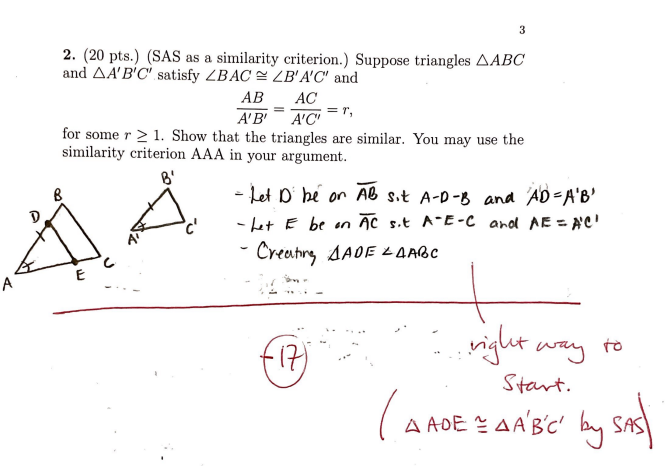 3
2. (20 pts.) (SAS as a similarity criterion.) Suppose triangles △ABC
and △A'B'C' satisfy ∠BAC ≅ ∠B'A'C' and
AB/A'B' = AC/A'C' = r,
for some r ≥ 1. Show that the triangles are similar. You may use the
similarity criterion AAA in your argument.
B'
B
D
A'
C'
C
E
A
- Let D be on AB s.t A-D-B and AD = A'B'
- Let E be on AC s.t A-E-C and AE = A'C'
- Creating △ADE ∠ △ABC
-17
right way to
start.
(△ADE ≅ △A'B'C' by SAS)